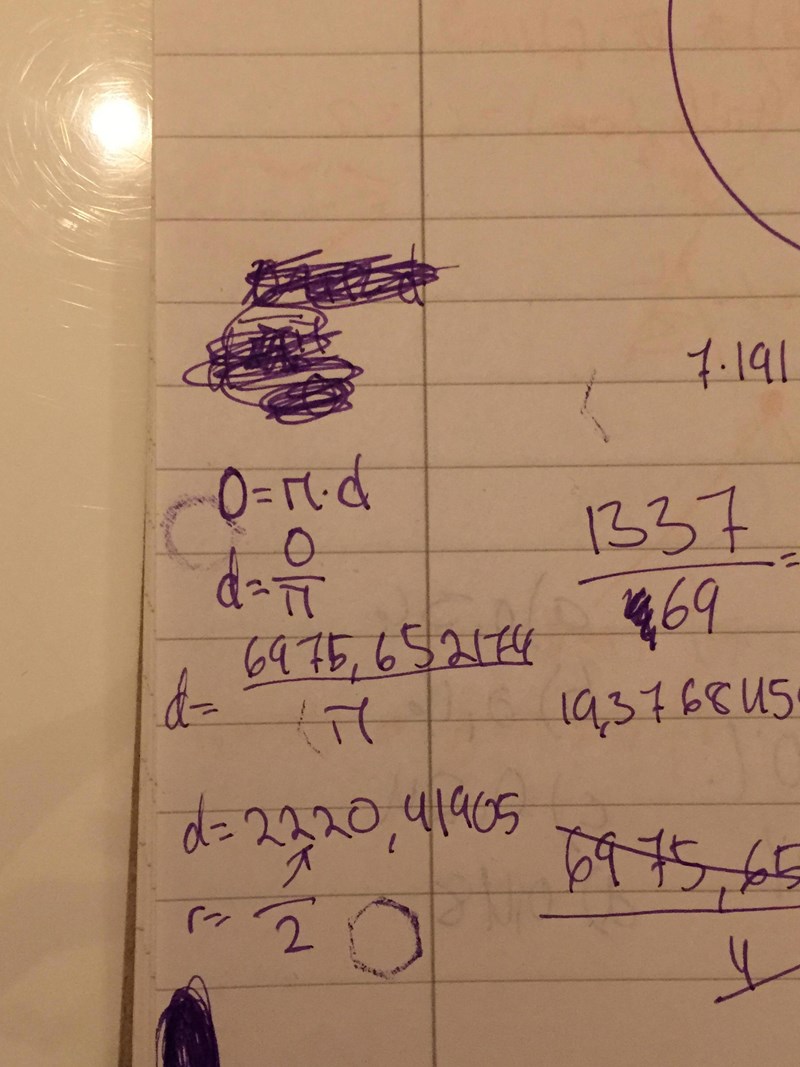 O=π·d
d=O/π
d= 6975,652174/π
d=2220,41905
r= /2
7·191
1337/69 =
19,3768115
6975,65
4